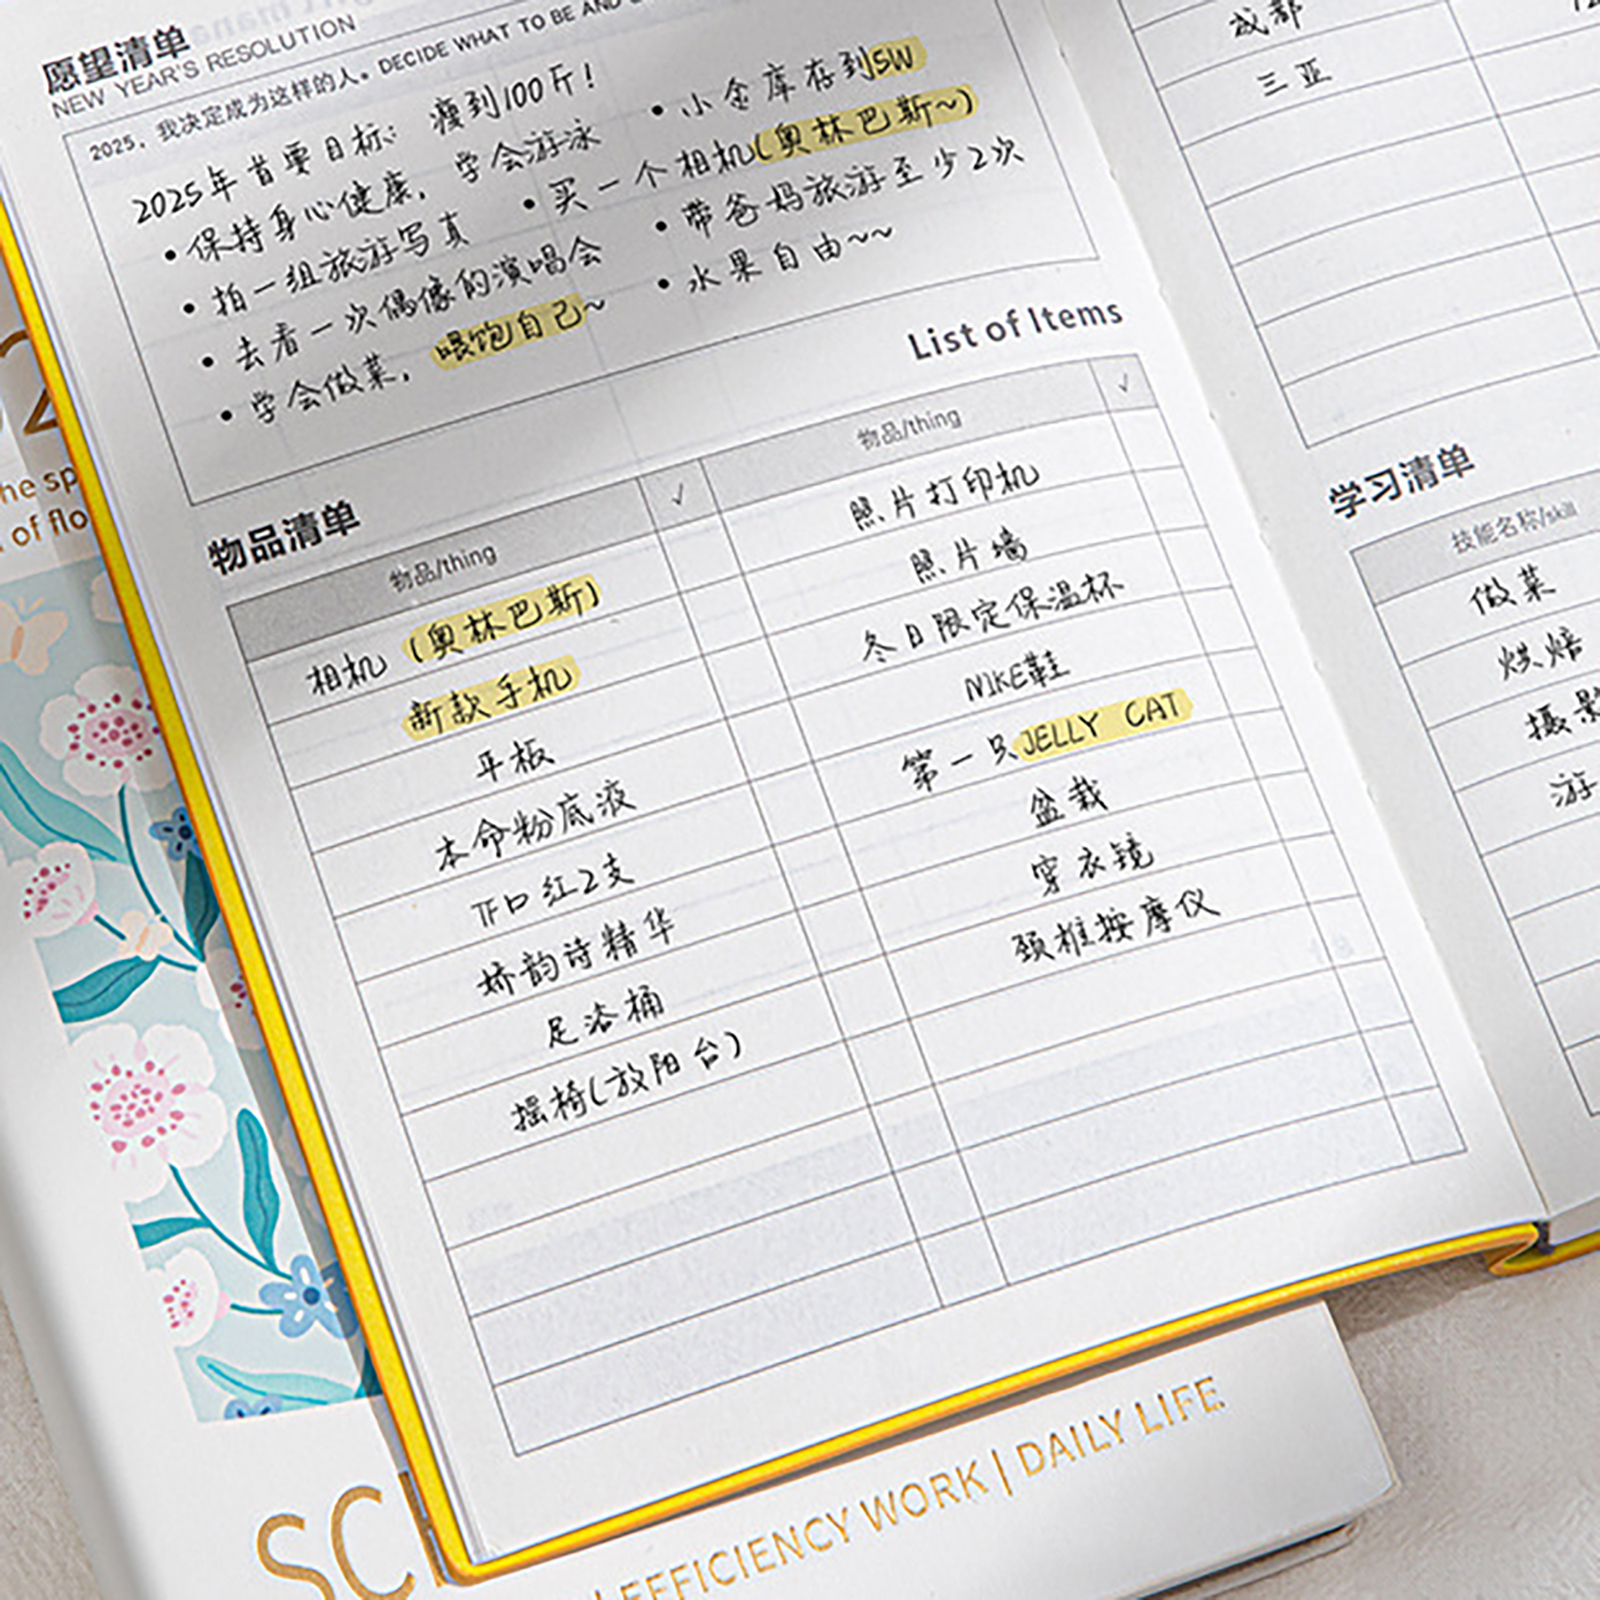 愿望清单
NEW YEAR'S RESOLUTION
2025，我决定成为这样的人。DECIDE WHAT TO BE AND
2025年首要目标：瘦到100斤！
• 保持身心健康，学会游泳
• 小金库存到5W
• 拍一组旅游写真
• 买一个相机(奥林巴斯~)
• 去看一次偶像的演唱会
• 带爸妈旅游至少2次
• 学会做菜，喂饱自己~
• 水果自由~~
List of Items
物品清单
物品/thing √ 物品/thing √
相机（奥林巴斯） 照片打印机
新款手机 照片墙
平板 冬日限定保温杯
本命粉底液 NIKE鞋
TF口红2支 第一只JELLY CAT
娇韵诗精华 盆栽
足浴桶 穿衣镜
摇椅(放阳台) 颈椎按摩仪
成都
三亚
学习清单
技能名称/skill
做菜
烘焙
摄影
游
he sp
of flo
SC
EFFICIENCY WORK | DAILY LIFE